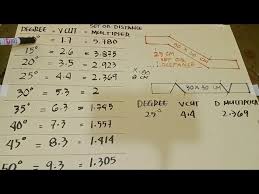 DEGREE = V CUT = SET OR DISTANCE
MULTIPLIER
= 1.7 = 5.780
15° = 2.6 = 3.873
20° = 3.5 = 2.923
25° = 4.4 = 2.369
30° = 5.3 = 2
35° = 6.3 = 1.745
40° = 7.3 = 1.557
45° = 8.3 = 1.414
50° = 9.3 = 1.305
25 CM
SET OR
DISTANCE
30 X 30 CM
DEGREE V CUT D MULTIPLIER
25° 4.4 2.369